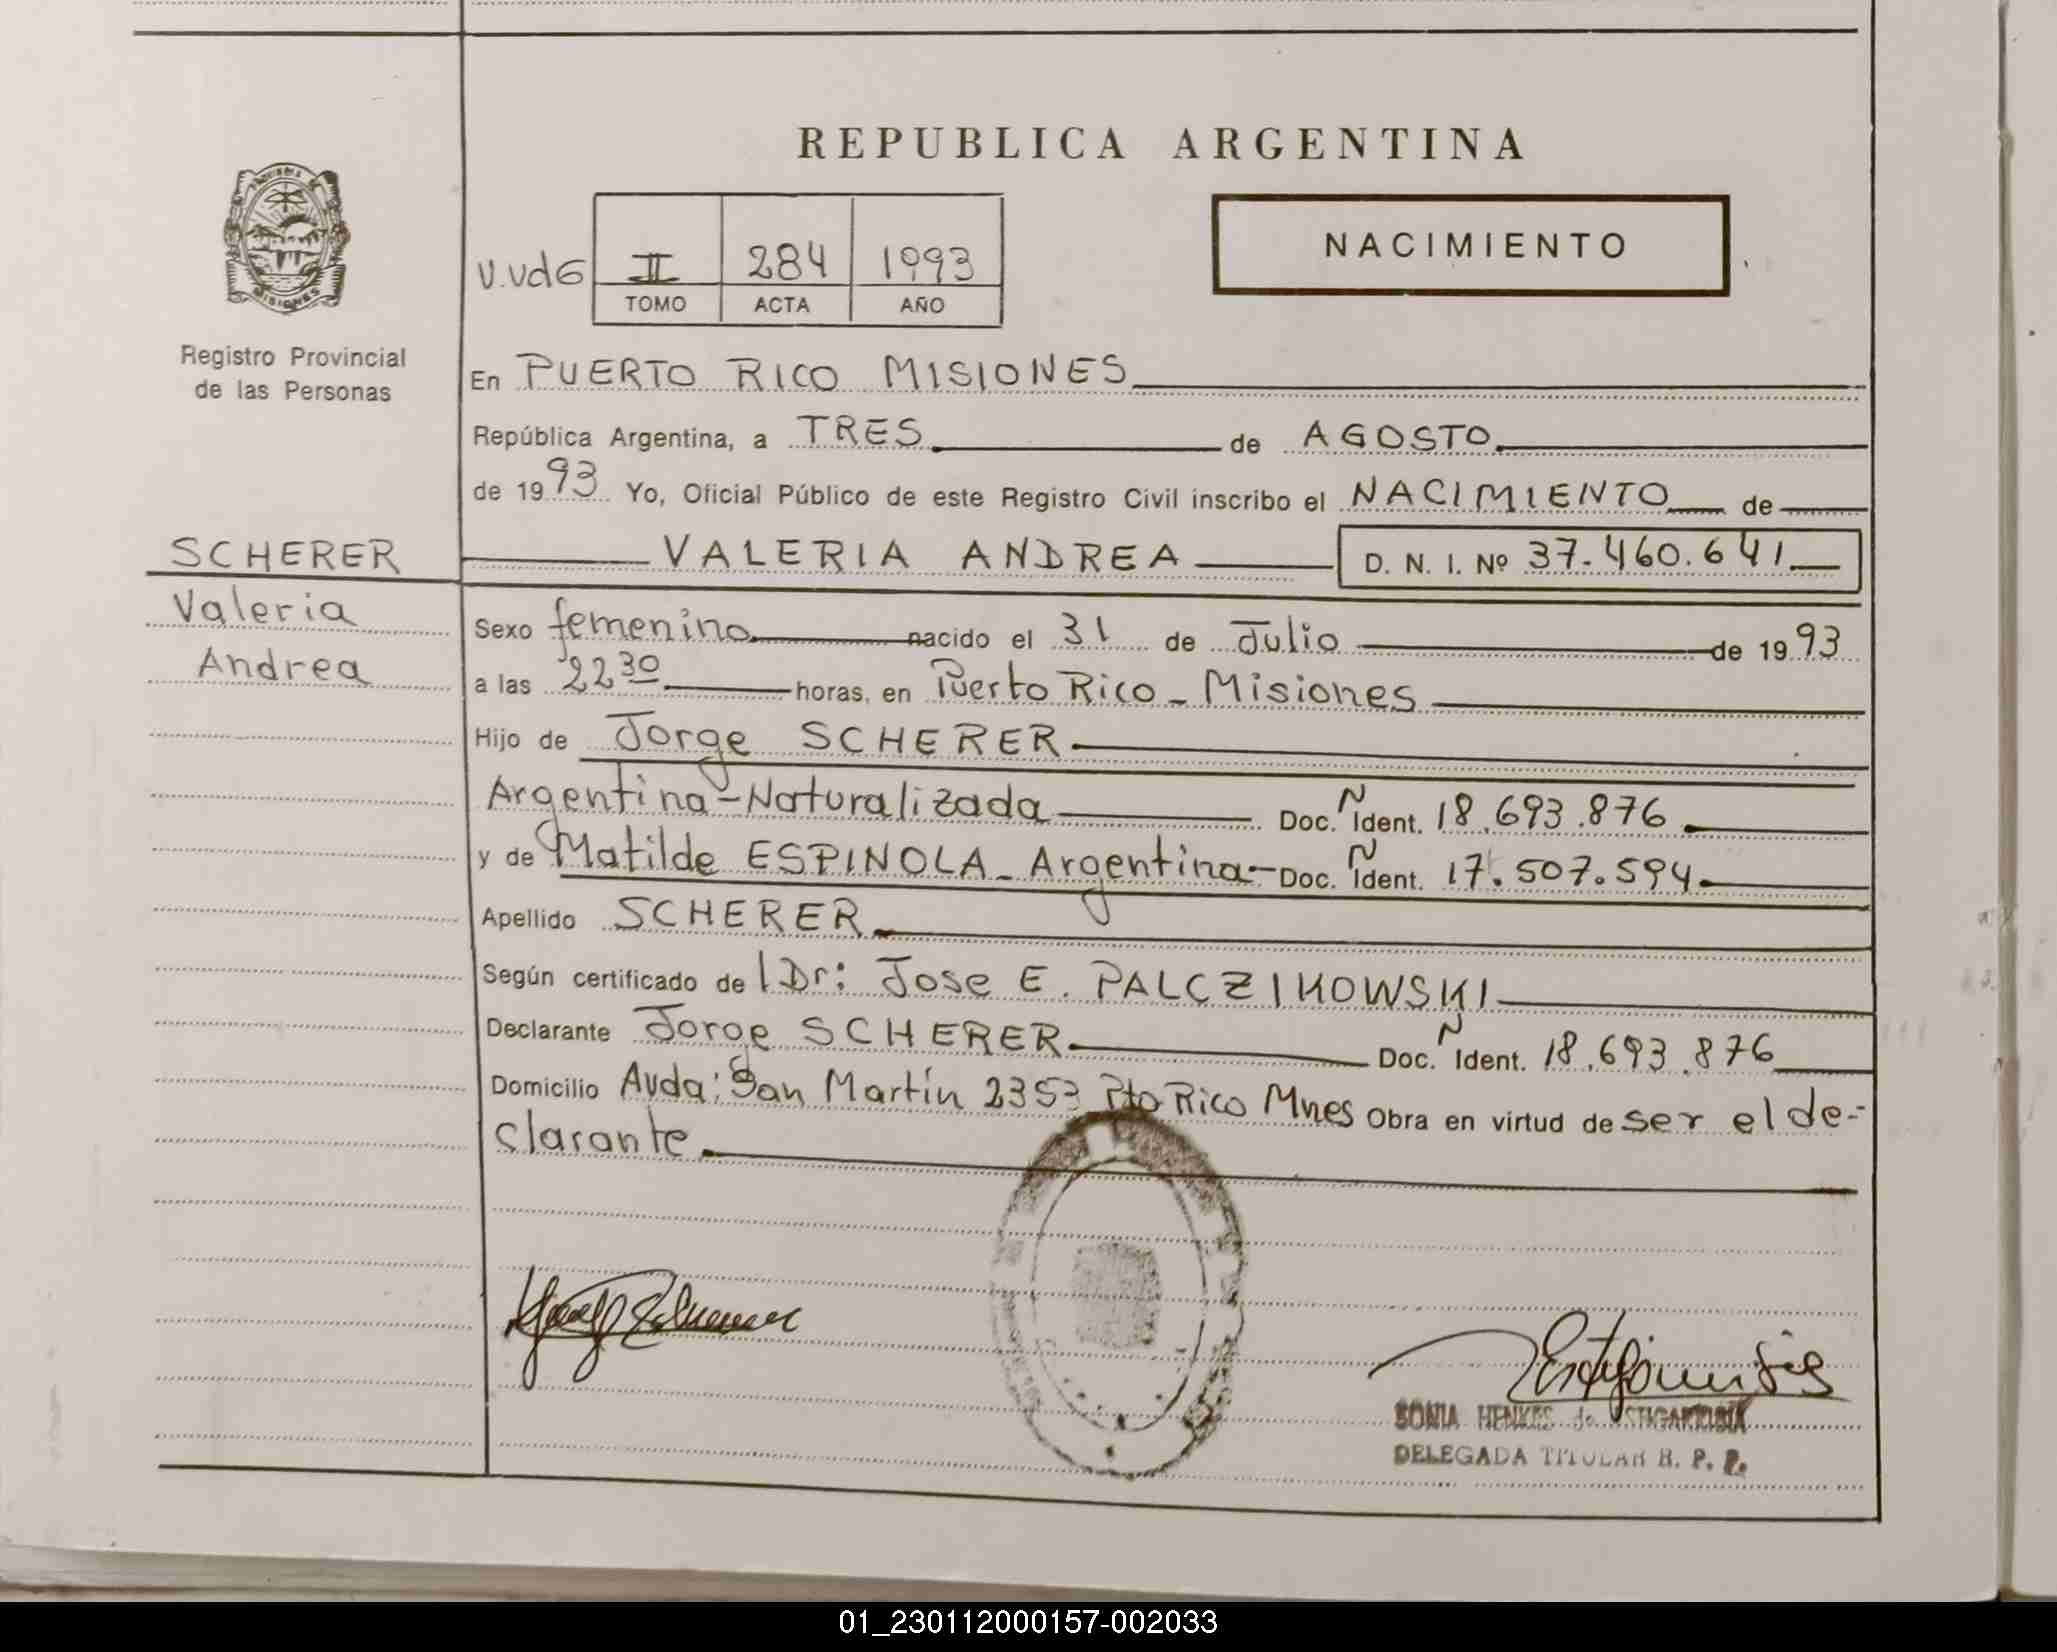 REPUBLICA ARGENTINA
PROVINCIA DE
MISIONES
Registro Provincial
de las Personas
V.vdG II 284 1993
TOMO ACTA AÑO
NACIMIENTO
En PUERTO RICO MISIONES
República Argentina, a TRES de AGOSTO
de 1993 Yo, Oficial Público de este Registro Civil inscribo el NACIMIENTO de
SCHERER
Valeria
Andrea
VALERIA ANDREA D. N. I. Nº 37.460.641
Sexo femenino nacido el 31 de Julio de 1993
a las 22 30 horas, en Puerto Rico - Misiones
Hijo de Jorge SCHERER
Argentina-Naturalizada Doc. N Ident. 18.693.876
y de Matilde ESPINOLA - Argentina- Doc. N Ident. 17.507.594
Apellido SCHERER
Según certificado de l Dr: Jose E. PALCZIKOWSKI
Declarante Jorge SCHERER Doc. N Ident. 18.693.876
Domicilio Avda: San Martín 2353 Pto Rico Mnes Obra en virtud de ser el de-
clarante
SONIA HENKES de ESTIGARRIBIA
DELEGADA TITULAR R. P. P.
01_230112000157-002033